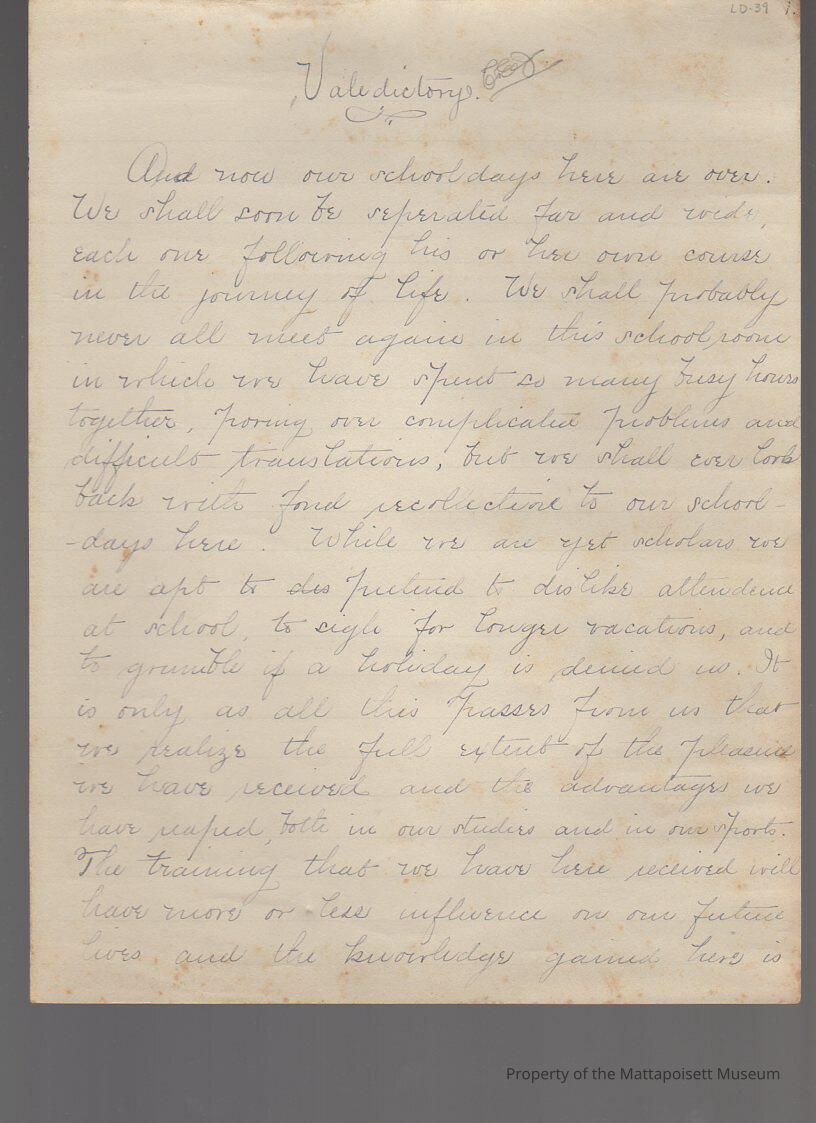 LD-39 1.
Valedictory.
And now our school days here are over.
We shall soon be seperated far and wide,
each one following his or her own course
in the journey of life. We shall probably
never all meet again in this schoolroom
in which we have spent so many busy hours
together, poring over complicated problems and
difficult translations, but we shall ever look
back with fond recollection to our school-
-days here. While we are yet scholars we
are apt to des pretend to dislike attendence
at school, to sigh for longer vacations, and
to grumble if a holiday is denied us. It
is only as all this passes from us that
we realize the full extent of the pleasure
we have received and the advantages we
have reaped, both in our studies and in our sports.
The training that we have here received will
have more or less influence on our future
lives and the knowledge gained here is
Property of the Mattapoisett Museum